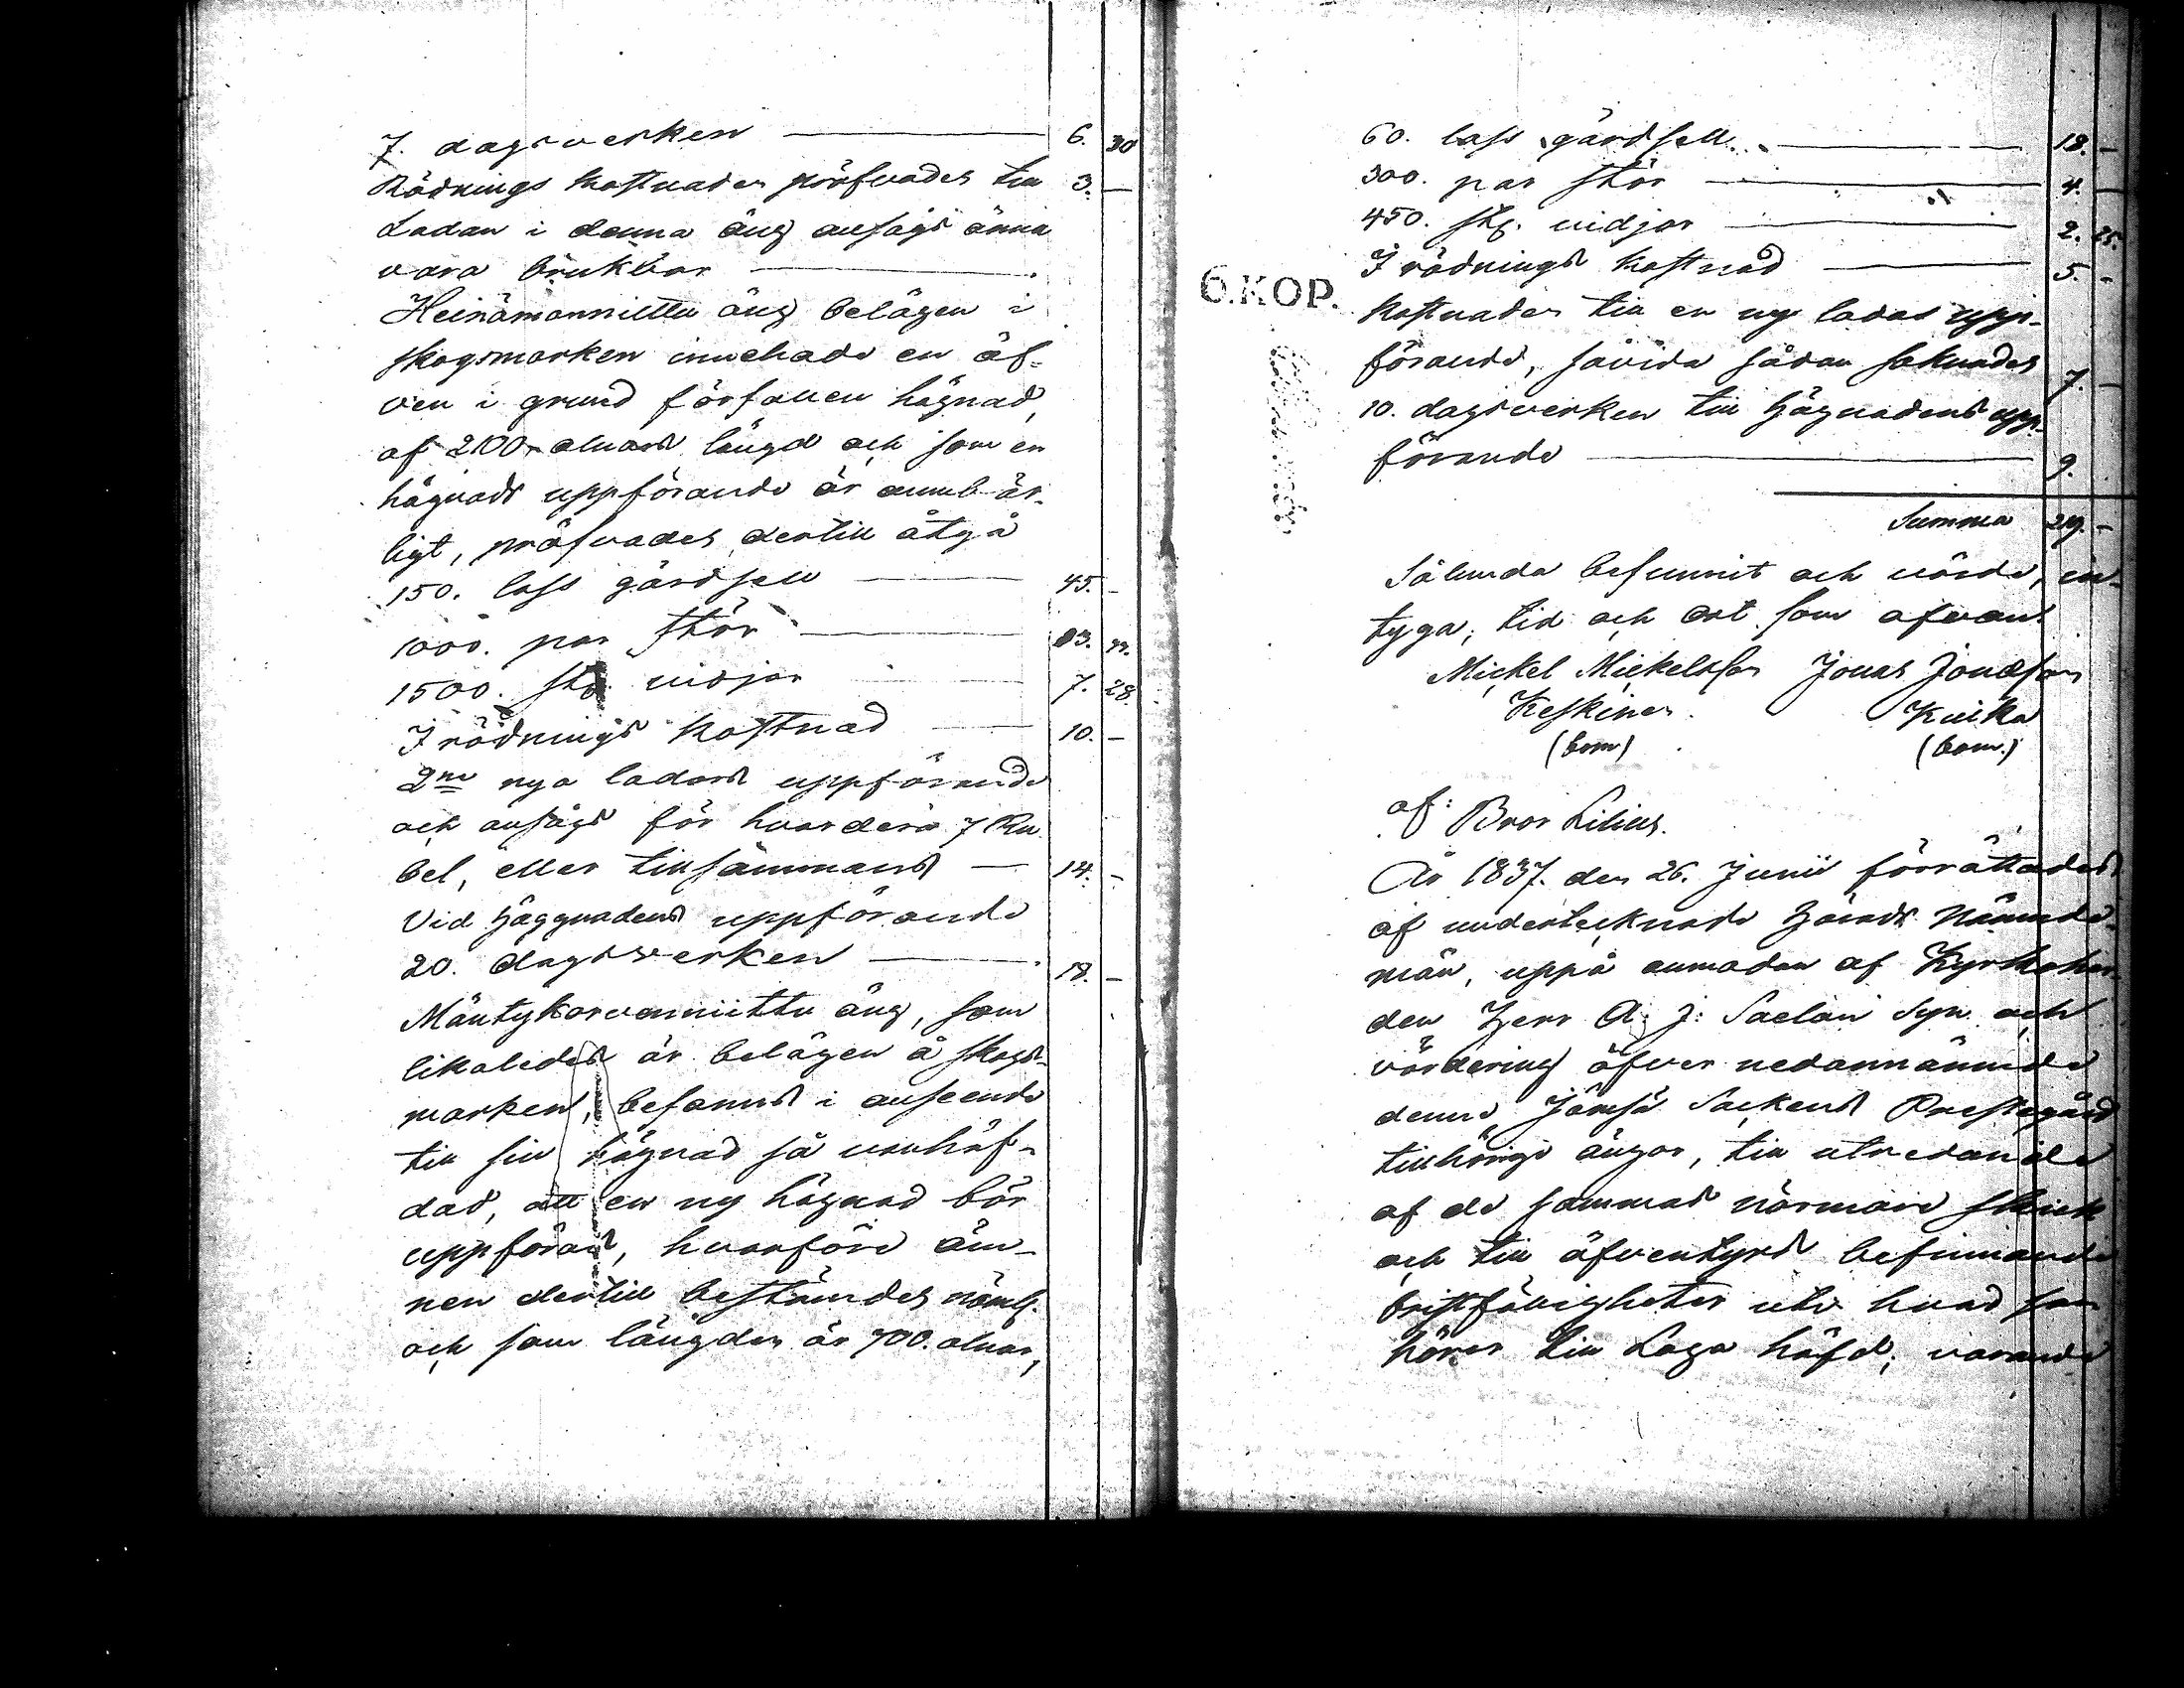 7. dagsverken — 6. 30
Rödnings kostnader pröfvades till 3. —
Ladan i denna äng ansågs ännu
vara brukbar —
Heinämanniittu äng belägen i
skogsmarken innehade en äf-
ven i grund förfallen hägnad,
af 2100 alnars längd och som en
hägnads uppförande är oumbär-
ligt, pröfvades dertill åtgå
150. lass gärdsell — 45. —
1000. par stör — 13.
1500. stg vidjor 7. 28.
I rödnings kostnad — 10. —
2ne nya ladors uppförande
och ansågs för hvardera 7 Ru
bel, eller tillsammans — 14. —
Vid häggnadens uppförande
20. dagsverken — 18. —
Mäntykorvenniittu äng, som
likaledes är belägen å skogs-
marken, befanns i anseende
till sin hägnad så vanhäf-
dad, att en ny hägnad bör
uppföras, hvarföre äm-
nen dertill bestämdes näml.
och som längden är 700. alnar,
60. lass gärdsell. — 18. —
300. par stör — 4. —
450. stg. vidjor — 2. 25.
I rödnings kostnad — 5. —
6.KOP.
kostnader till en ny ladas upp-
förande, såvida sådan saknades 7. —
10. dagsverken till hägnadens upp-
förande — 9.
Summa —
Sålunda befunnit och värde, in-
tyga; tid och ort som ofvan.
Mickel Mickelsson Jonas Jonasson
Keskinen. Kuikka
(bom) (bom.)
af: Bror Lilius.
År 1837. den 26. Junii förrättades
af undertecknade Härads Nämnde-
män, uppå anmodan af Kyrkoher-
den Herr A. J: Saelan Syn och
värdering öfver nedannämnde
denne Jämsä Sockens Prestegård
tillhörige ängar, till utredande
af de sammas närmare skick
och till äfventyrs befinnande
bristfälligheter uti hvad som
hörer till Laga häfd; varande